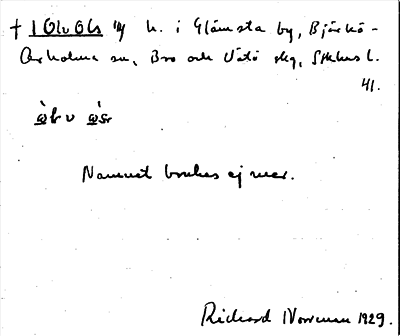 † h. i Glämsta by, Björkö-
Arholma sn, Bro och Vätö skg, Sthlms l.
41.
Namnet brukas ej mer.
Richard Norrman 1929.